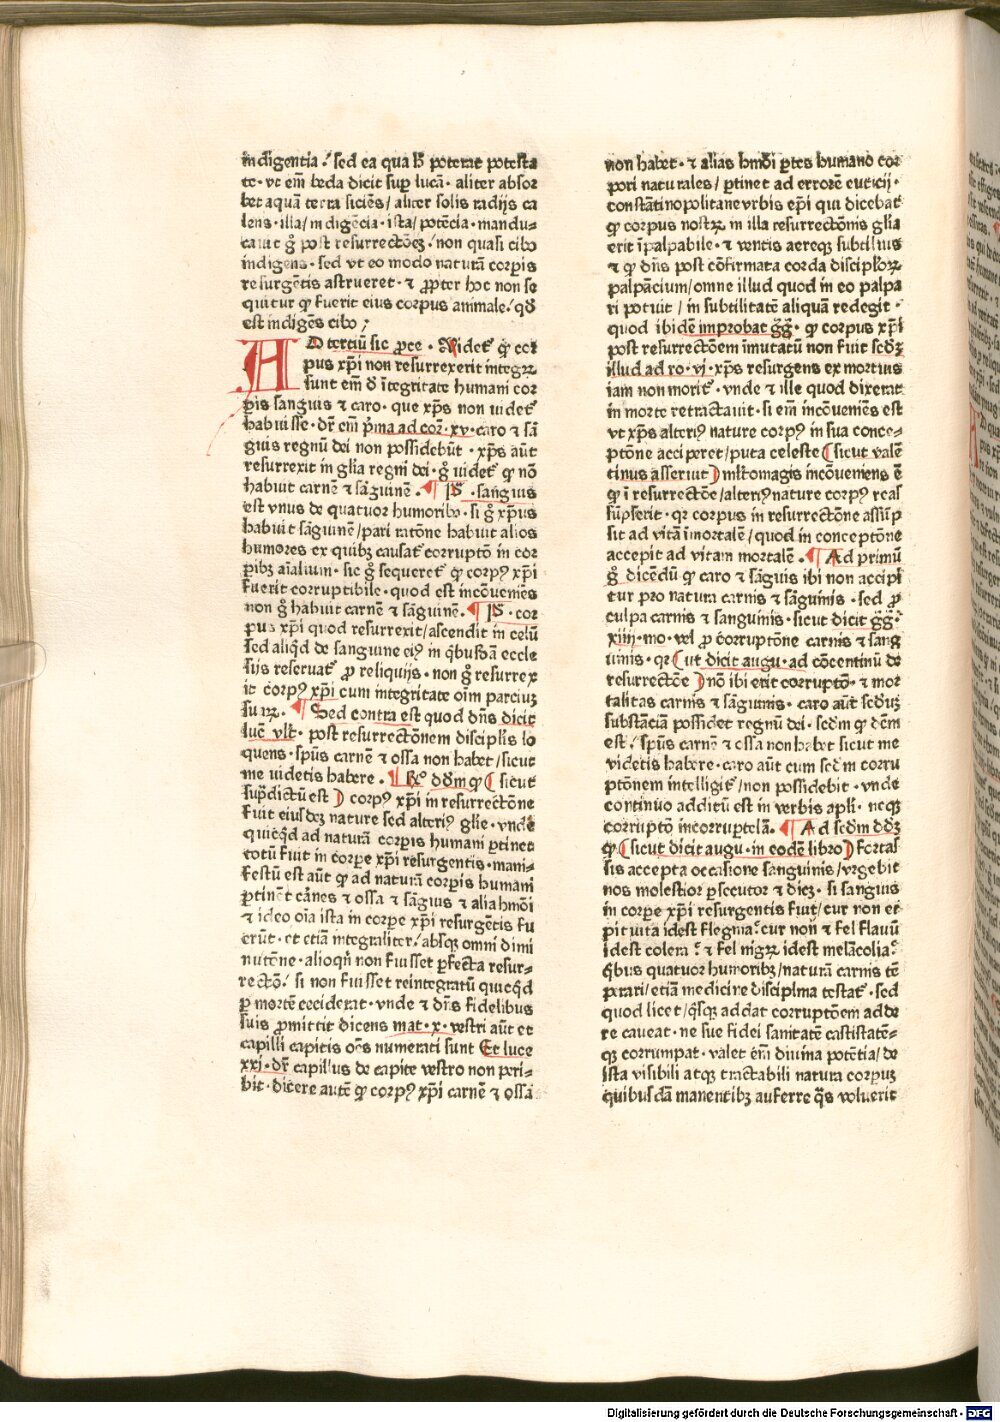 indigentia / sed ea qua hr̄ poterat potesta
te · vt em̄ beda dicit sup̄ lucā · aliter absor
bet aquā terra siciēs / aliter solis radijs ca
lens · illa / indigēcia · ista / potēcia · mandu-
cauit gͦ post resurrectōeꝫ · non quasi cibo
indigens · sed vt eo modo naturā corꝑis
resurgētis astrueret · ⁊ ꝓpter hoc non se
quitur ꝙ fuerit eius corpus animale / qd̄
est indigēs cibo ;
AD tercīu sic ꝓce · Videt̄ ꝙ cor
pus xp̄i non resurrexerit integꝝ
sunt em̄ d̄ ītegritate humani cor
ꝑis sanguis ⁊ caro · que xp̄s non uidet̄
habuisse · dr̄ em̄ pͥma ad cor̄ · xv · caro ⁊ sā
guis regnū dei non possidebūt · xp̄s aūt
resurrexit in glīa regni dei · gͦ uidet̄ ꝙ nō
habuit carnē ⁊ sāguinē · ¶ Pͣ · sanguis
est vnus de quatuor humoribꝰ · si gͦ xp̄us
habuit sāguinē / pari ratōne habuit alios
humores ex quibꝫ causat̄ corruptō in cor
ꝑibꝫ aīalium · sic gͦ sequeret̄ ꝙ corpꝰ xp̄i
fuerit corruptibile · quod est incōueniēs
non gͦ habuit carnē ⁊ sāguinē · ¶ Pͣ · cor
pus xp̄i quod resurrexit / ascendit in celū
sed aliqͥd de sanguine eiꝰ in qͥbusdā eccle
sijs reseruat̄ ꝓ reliquijs · non gͦ resurrex
it corpꝰ xp̄i cum integritate oīm parciuꝫ
suaꝝ · ¶ Sed contra est quod dn̄s dicit
lucē vlt̄ · post resurrectōnem discipl̄is lo
quens · spūs carnē ⁊ ossa non habet / sicut
me uidetis habere · ¶ Rͦ dd̄m ꝙ ( sicut
sup̄dictū est ) corpꝰ xp̄i in resurrectōne
fuit eiusdeꝫ nature sed alteriꝰ glīe · vnde
quicqͥd ad naturā corꝑis humani ꝑtinet
totū fuit in corꝑe xp̄i resurgentis · mani-
festū est aūt ꝙ ad naturā corꝑis humani
ꝑtinēt carnes ⁊ ossa ⁊ sāguis ⁊ alia hm̄oi
⁊ ideo oīa ista in corꝑe xp̄i resurgētis fu
erūt · et etiā integraliter / absqꝫ omni dimi
nutōne · alioqn̄ non fuisset ꝑfecta resur-
rectō / si non fuisset reintegratū quicqͥd
ꝑ mortē ceciderat · vnde ⁊ dn̄s fidelibus
suis ꝓmittit dicens mat · x · vestri aūt et
capilli capitis oēs numerati sunt Et luce
xxi · dr̄ capillus de capite vestro non peri-
bit · dicere autē ꝙ corpꝰ xp̄i carnē ⁊ ossa
non habet · ⁊ alias hm̄oi ꝑtes humano cor
pori naturales / ꝑtinet ad errorē euticij ·
constātinopolitane vrbis ep̄i qui dicebat
ꝙ corpus nostꝝ in illa resurrectōnis glīa
erit īpalpabile · ⁊ ventis aereqꝫ subtilius
⁊ ꝙ dn̄s post cōfirmata corda discipl̄oꝝ
palpāciuꝫ / omne illud quod in eo palpa
ri potuit / in subtilitatē aliquā redegit ·
quod ibidē improbat gg̃ · ꝙ corpus xp̄i
post resurrectōem īmutatū non fuit scd̄ꝫ
illud ad ro · vi · xp̄s resurgens ex mortuis
iam non morit̄ · vnde ⁊ ille quod dixerat
in morte retractauit · si em̄ incōueniēs est
vt xp̄s alteriꝰ nature corpꝰ in sua conce-
ptōne acciperet / puta celeste ( sicut valē
tinus asseruit ) ml̄tomagis incōueniens ē
ꝙ ī resurrectōe / alteriꝰ nature corpꝰ reas
sūpserit · qꝛ corpus in resurrectōne assūp
sit ad vitā īmortalē / quod in conceptōne
accepit ad vitam mortalē · ¶ Ad primū
gͦ dicēdū ꝙ caro ⁊ sāguis ibi non accipi
tur pro natura carnis ⁊ sāguinis · sed ꝓ
culpa carnis ⁊ sanguinis · sicut dicit gg̃ ·
xiiij · mo · vel ꝓ corruptōne carnis ⁊ sang
uinis · qꝛ ( ut dicit augu · ad cōcentinū de
resurrectōe ) nō ibi erit corruptō · ⁊ mor
talitas carnis ⁊ sāguinis · caro aūt scd̄uꝫ
substāciā possidet regnū dei · scd̄m ꝙ dc̄m
est / spūs carnē ⁊ ossa non habet sicut me
videtis habere · caro aūt cum scd̄m corru
ptōnem intelligit̄ / non possidebit · vnde
continuo additū est in verbis apl̄i · neqꝫ
corruptō incorruptelā · ¶ Ad scd̄m dd̄ꝫ
ꝙ ( sicut dicit augu · in eodē libro ) Fortas
sis accepta occasione sanguinis / vrgebit
nos molestior ꝑsecutor ⁊ dicꝫ · si sanguis
in corꝑe xp̄i resurgentis fuit / cur non et
pituita idest flegma / cur non ⁊ fel flauū
idest colera / ⁊ fel nigꝝ idest melācolia /
qͥbus quatuor humoribꝫ / naturā carnis tē
ꝑari / etiā medicine disciplina testat̄ · sed
quod licet / qͥsqꝫ addat corruptōem adde
re caueat · ne sue fidei sanitatē castistatē-
qꝫ corrumpat · valet em̄ diuina potētia / de
ista visibili atqꝫ tractabili natura corpuꝫ
quibusdā manentibꝫ auferre qͣs voluerit
Digitalisierung gefördert durch die Deutsche Forschungsgemeinschaft - DFG